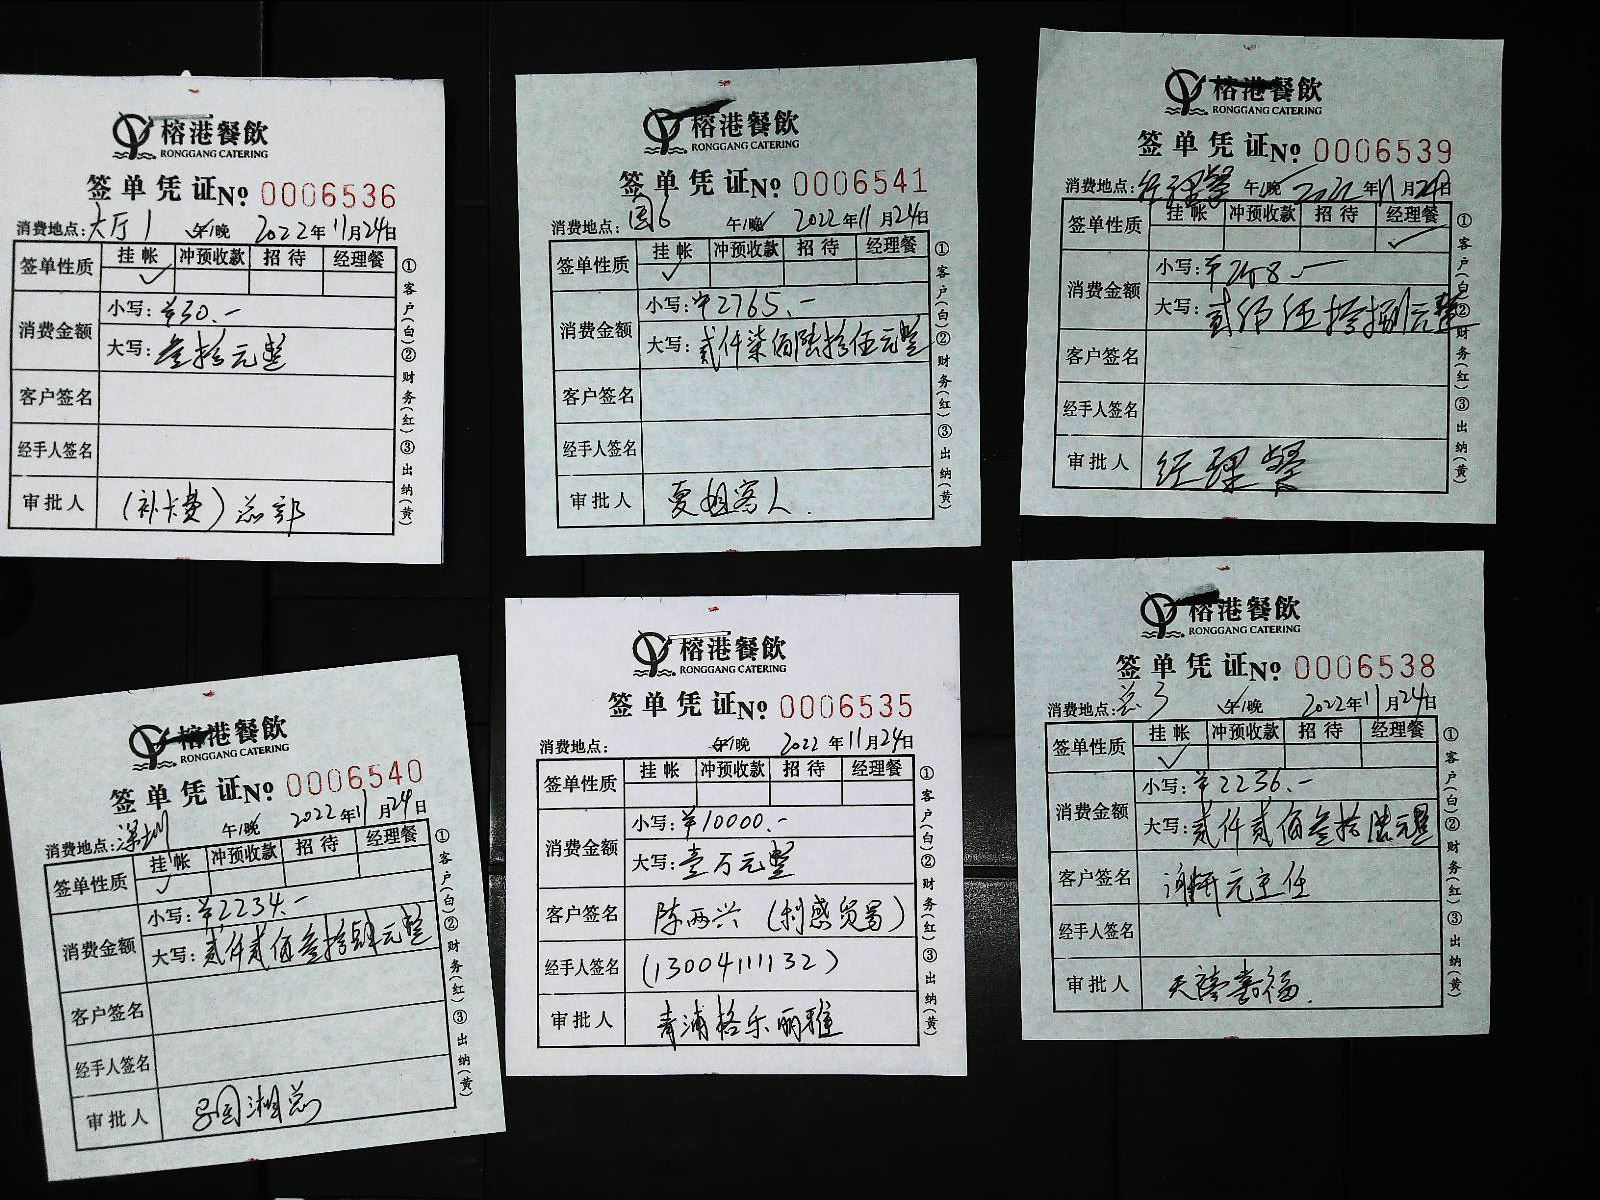 榕港餐飲
RONGGANG CATERING
签单凭证 No 0006536
消费地点: 大厅1 午/晚 2022年11月24日
签单性质 挂帐 冲预收款 招待 经理餐
✓
消费金额 小写: ¥30.-
大写: 叁拾元整
客户签名
经手人签名
审批人 (补卡费) 总部
①客户(白)②财务(红)③出纳(黄)
榕港餐飲
RONGGANG CATERING
签单凭证 No 0006541
消费地点: 国6 午/晚 2022年11月24日
签单性质 挂帐 冲预收款 招待 经理餐
✓
消费金额 小写: ¥2765.-
大写: 贰仟柒佰陆拾伍元整
客户签名
经手人签名
审批人 夏姐客人.
①客户(白)②财务(红)③出纳(黄)
榕港餐飲
RONGGANG CATERING
签单凭证 No 0006539
消费地点: 经理餐 午/晚 2022年11月24日
签单性质 挂帐 冲预收款 招待 经理餐
✓
消费金额 小写: ¥258.-
大写: 贰佰伍拾捌元整
客户签名
经手人签名
审批人 经理餐
①客户(白)②财务(红)③出纳(黄)
榕港餐飲
RONGGANG CATERING
签单凭证 No 0006540
消费地点: 深圳 午/晚 2022年11月24日
签单性质 挂帐 冲预收款 招待 经理餐
✓
消费金额 小写: ¥2234.-
大写: 贰仟贰佰叁拾肆元整
客户签名
经手人签名
审批人 吕国湘总
①客户(白)②财务(红)③出纳(黄)
榕港餐飲
RONGGANG CATERING
签单凭证 No 0006535
消费地点: 午/晚 2022年11月24日
签单性质 挂帐 冲预收款 招待 经理餐
消费金额 小写: ¥10000.-
大写: 壹万元整
客户签名 陈两兴 (利感贸易)
经手人签名 (13004111132)
审批人 青浦格乐丽雅
①客户(白)②财务(红)③出纳(黄)
榕港餐飲
RONGGANG CATERING
签单凭证 No 0006538
消费地点: 总3 午/晚 2022年11月24日
签单性质 挂帐 冲预收款 招待 经理餐
✓
消费金额 小写: ¥2236.-
大写: 贰仟贰佰叁拾陆元整
客户签名 元主任
经手人签名
审批人 天禧嘉福.
①客户(白)②财务(红)③出纳(黄)